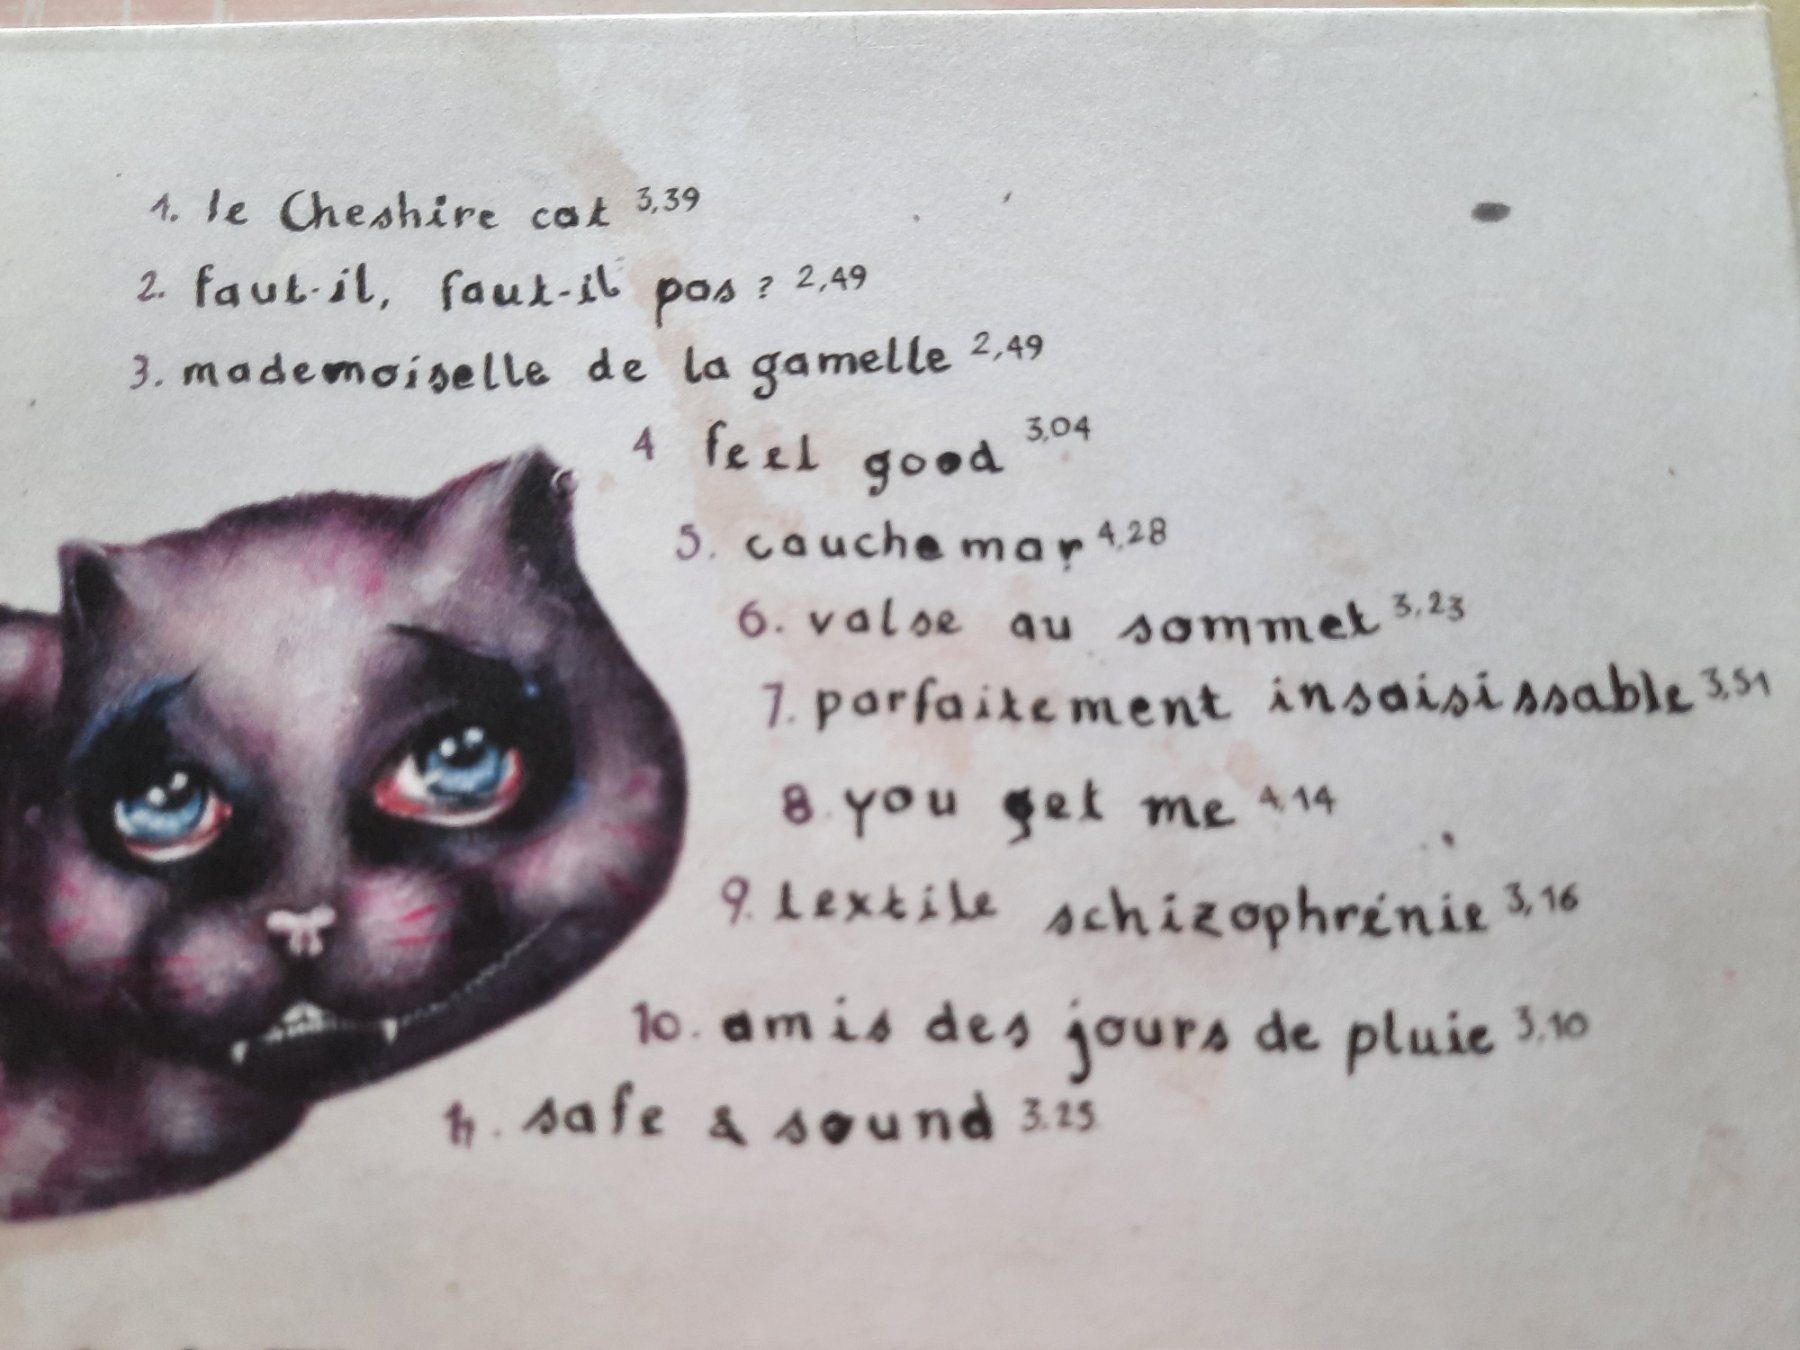 1. le Cheshire cat 3,39
2. faut-il, faut-il pas ? 2,49
3. mademoiselle de la gamelle 2,49
4 feel good 3,04
5. cauchemar 4,28
6. valse au sommet 3,23
7. parfaitement insaisissable 3,51
8. you get me 4,14
9. textile schizophrénie 3,16
10. amis des jours de pluie 3,10
11. safe & sound 3,25